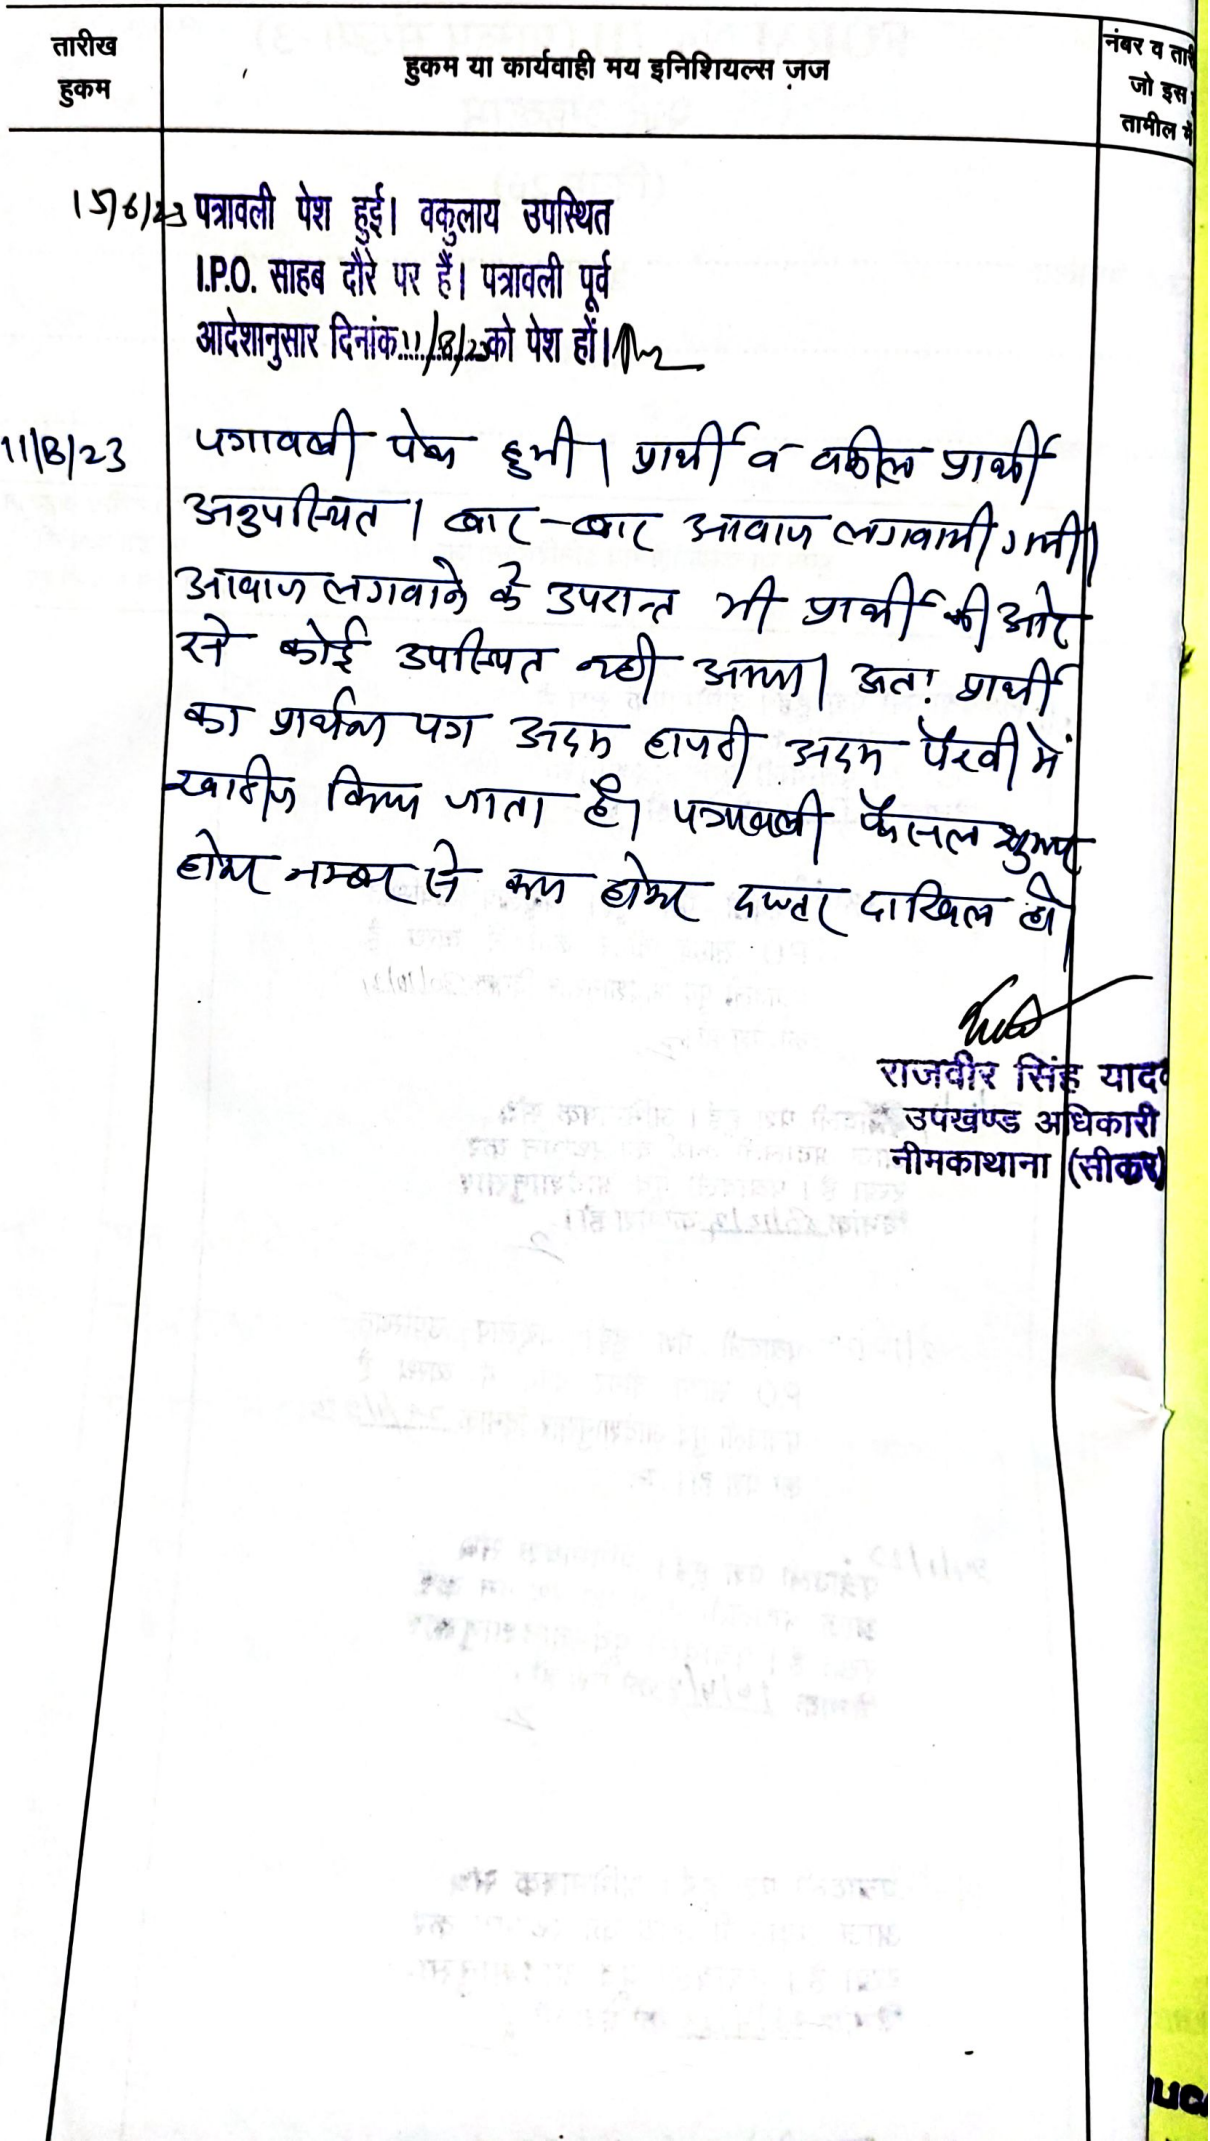 तारीख
हुकम
हुकम या कार्यवाही मय इनिशियल्स ज़ज
नंबर व तारी
जो इस हु
तामील में
15/6/23 पत्रावली पेश हुई। वकुलाय उपस्थित
I.P.O. साहब दौरे पर हैं। पत्रावली पूर्व
आदेशानुसार दिनांक 11/8/23 को पेश हों।
11/8/23 पत्रावली पेश हुयी। प्रार्थी व वकील प्रार्थी
अनुपस्थित। बार-बार आवाज लगवायी गयी।
आवाज लगवाने के उपरान्त भी प्रार्थी की ओर
से कोई उपस्थित नही आया। अतः प्रार्थी
का प्रार्थना पत्र अदम हाजरी अदम पैरवी में
खारीज किया जाता है। पत्रावली फैसल शुमार
होकर नम्बर से कम होकर दफ्तर दाखिल हो।
राजवीर सिंह यादव
उपखण्ड अधिकारी
नीमकाथाना (सीकर)